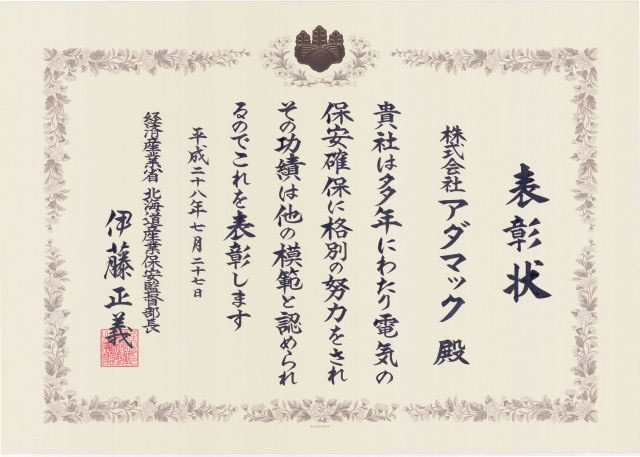 表彰状
株式会社 アダマック 殿
貴社は多年にわたり電気の
保安確保に格別の努力をされ
その功績は他の模範と認められ
るのでこれを表彰します
平成二十八年七月二十七日
経済産業省 北海道産業保安監督部長
伊藤正義